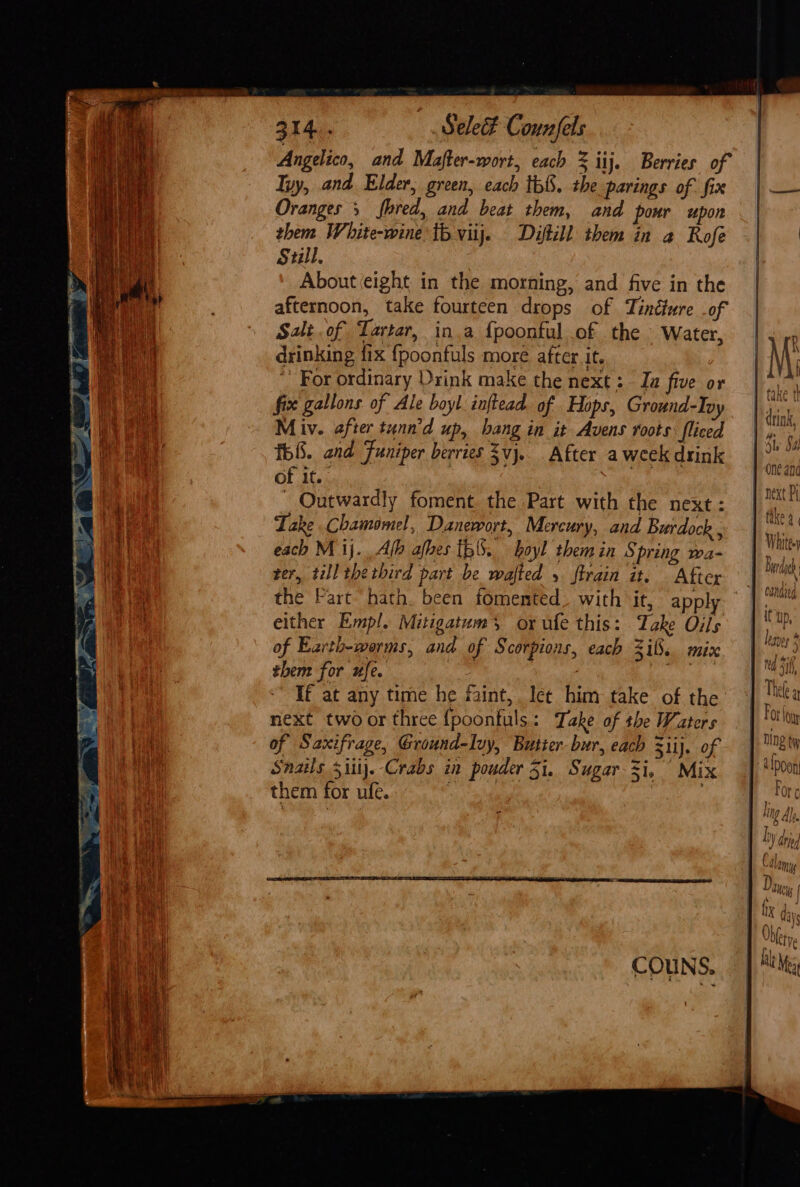 314. Select Counſels
Angelico, and Maſter-wort, each ℥ iij. Berries of
Ivy, and Elder, green, each ℔ß. the parings of ſix
Oranges ; ſhred, and beat them, and pour upon
them White-wine ℔ viij. Diſtill them in a Roſe
Still.
About eight in the morning, and five in the
afternoon, take fourteen drops of Tincture of
Salt of Tartar, in a ſpoonful of the Water,
drinking ſix ſpoonfuls more after it.
For ordinary Drink make the next : In five or
ſix gallons of Ale boyl inſtead of Hops, Ground-Ivy
M iv. after tunn'd up, hang in it Avens roots ſliced
℔ß. and Juniper berries ℥vj. After a week drink
of it.
Outwardly foment the Part with the next :
Take Chamomel, Danewort, Mercury, and Burdock,
each M ij. Aſh aſhes ℔ß. boyl them in Spring wa-
ter, till the third part be waſted , ſtrain it. After
the Part hath been fomented with it, apply
either Empl. Mitigatum ; or uſe this : Take Oils
of Earth-worms, and of Scorpions, each ℥iß. mix
them for uſe.
If at any time he faint, let him take of the
next two or three ſpoonfuls : Take of the Waters
of Saxifrage, Ground-Ivy, Butter bur, each ℥iij. of
Snails ℥iiij. Crabs in pouder ℨi. Sugar ℥i. Mix
them for uſe.
COUNS.
take
drink,
one and
next
take a
White-
Burdock
candied
it up,
leaves
red
Theſe
For
a ſpoon
For
dried
Daucus
ſix days
Obſerve